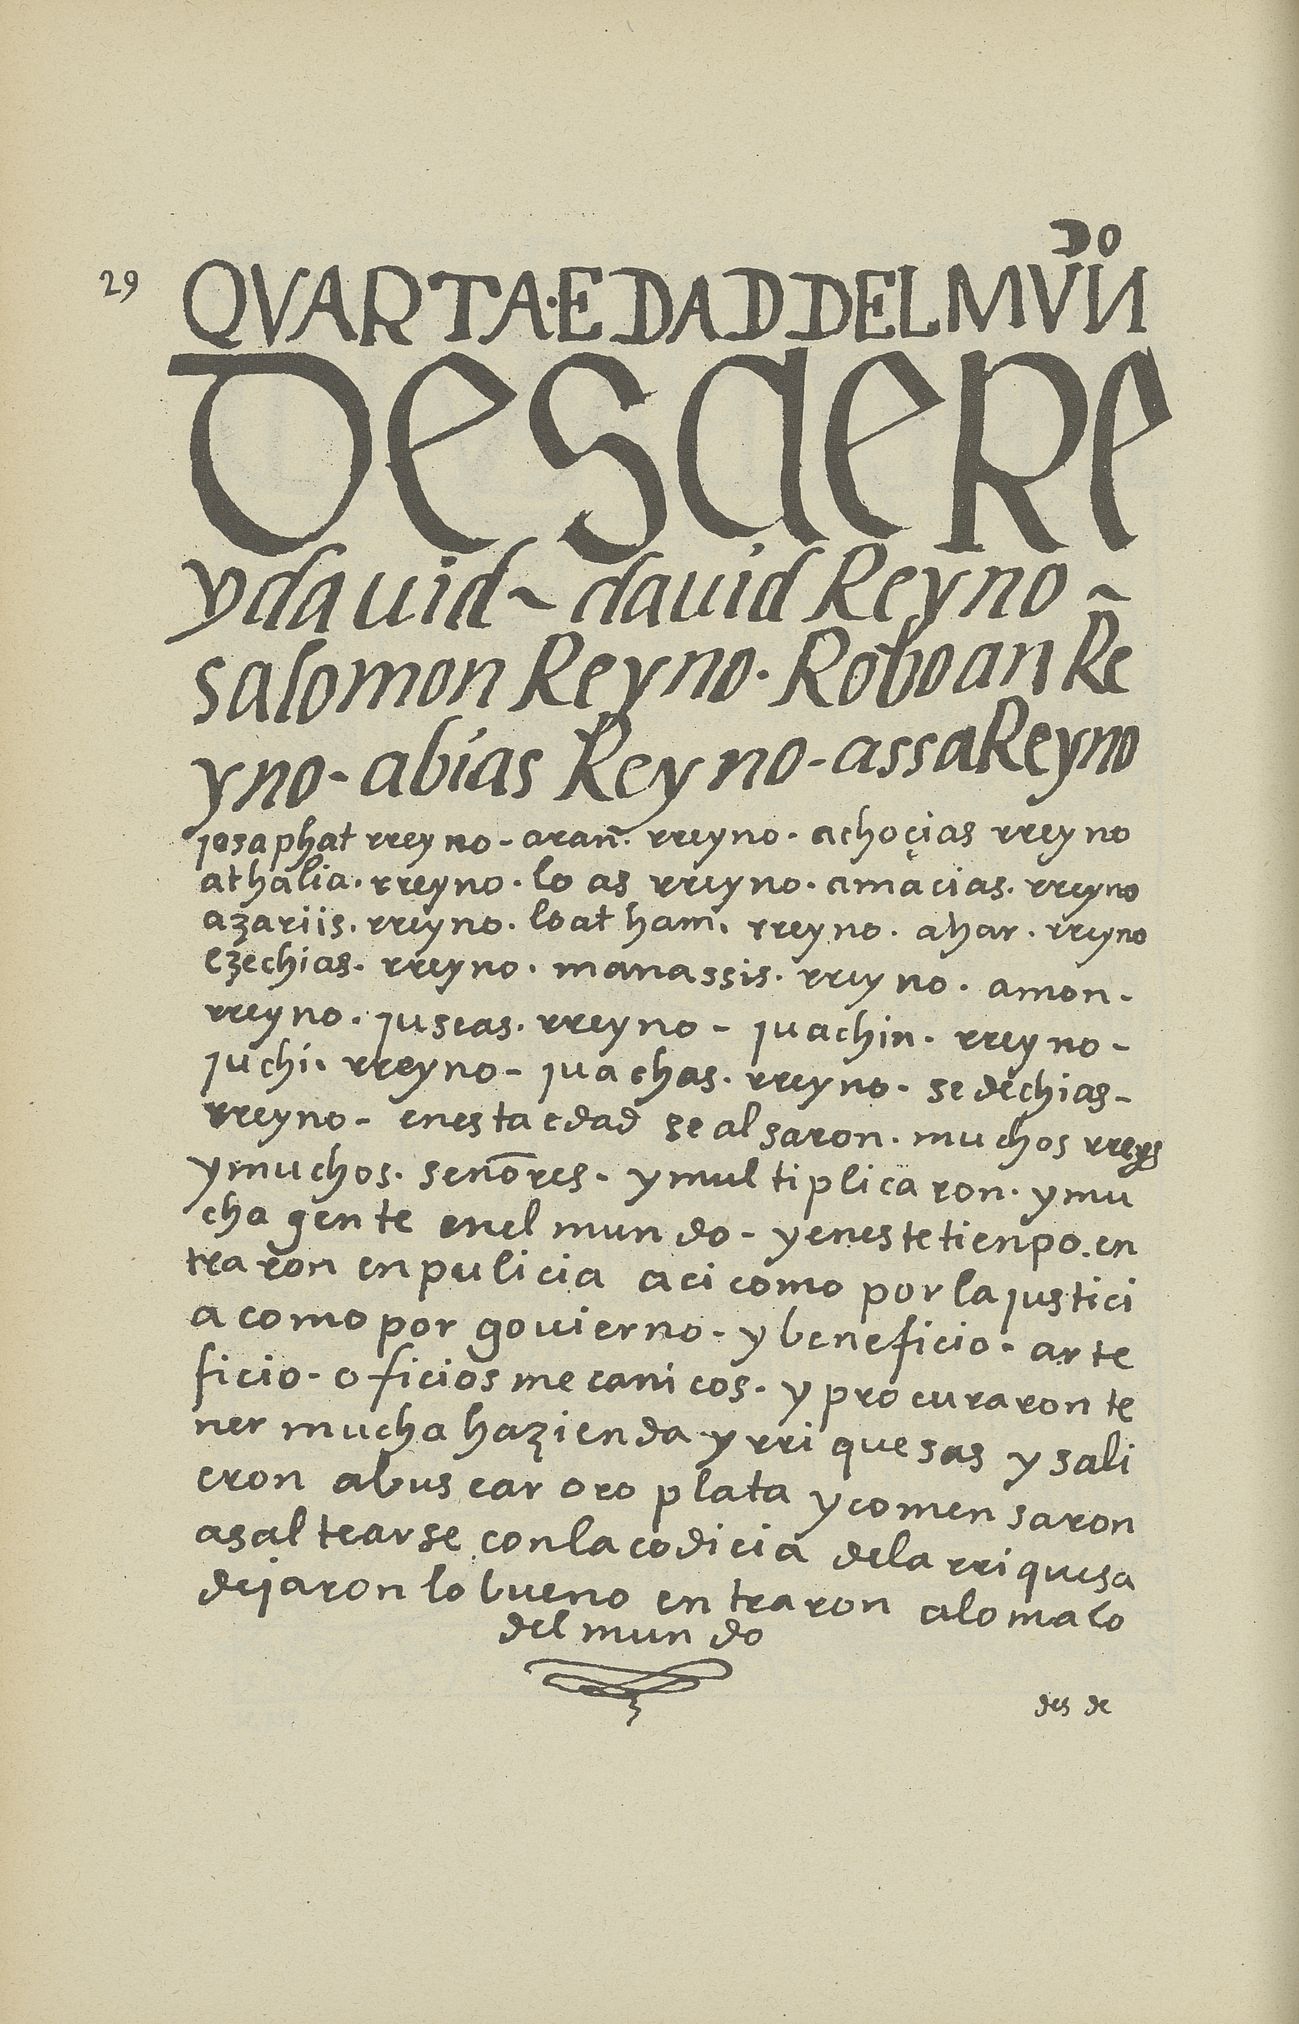 29
QVARTA·EDAD DEL MVÑ
DO
DESDE RE
y dauid ~ dauid Reyno ~
salomon Reyno. Roboan Re
yno - abias Reyno - assa Reyno
josaphat rreyno - aran. rreyno. achoçias rreyno
athalia. rreyno. loas rreyno. amacias. rreyno
azariis. rreyno. loatham. rreyno. ahar. rreyno
ezechias. rreyno. manassis. rreyno. amon.
rreyno. juseas. rreyno - juachin. rreyno -
juchi. rreyno - juachas. rreyno. sedechias -
rreyno - en esta edad se alsaron. muchos rreys
y muchos. senōres. y multiplicaron. y mu
cha gente en el mundo - y en este tienpo. en
traron en pulicia aci como por la justici
a como por gouierno - y beneficio. arte
ficio. oficios mecanicos. y procuraron te
ner mucha hazienda y rriquesas y sali
eron a buscar oro plata y comensaron
a saltearse con la codicia de la rriquesa
dejaron lo bueno entraron a lo malo
del mundo
desde